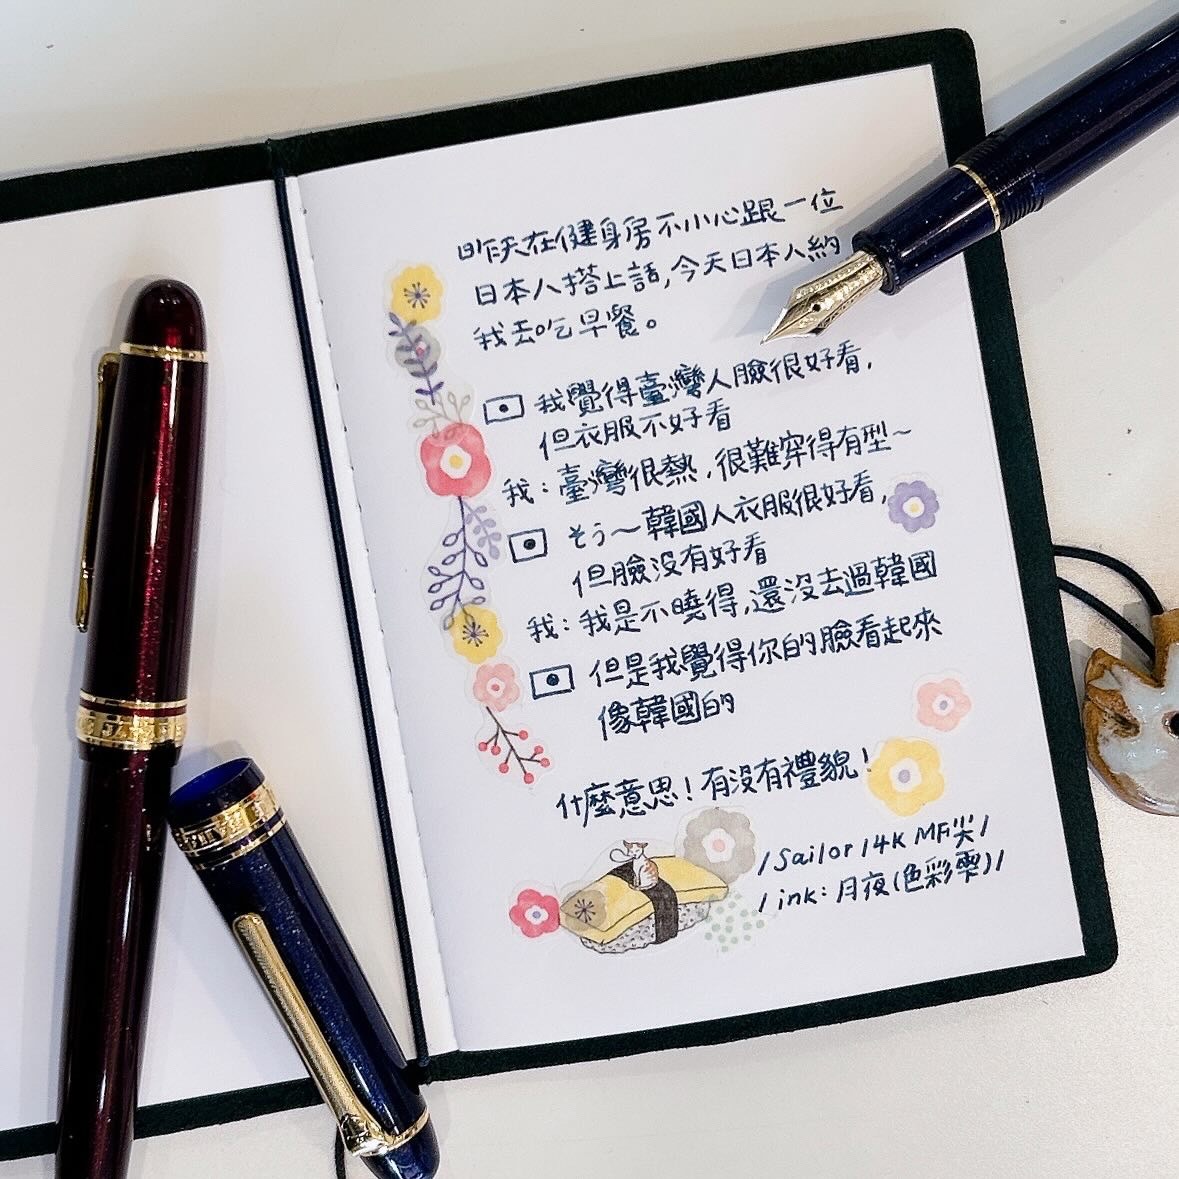 昨天在健身房不小心跟一位
日本人搭上話,今天日本人約
我去吃早餐。
我覺得臺灣人臉很好看,
但衣服不好看
我:臺灣很熱,很難穿得有型~
そう~韓國人衣服很好看,
但臉沒有好看
我:我是不曉得,還沒去過韓國
但是我覺得你的臉看起來
像韓國的
什麼意思!有沒有禮貌!
/Sailor 14K MF尖/
/ink:月夜(色彩雫)/